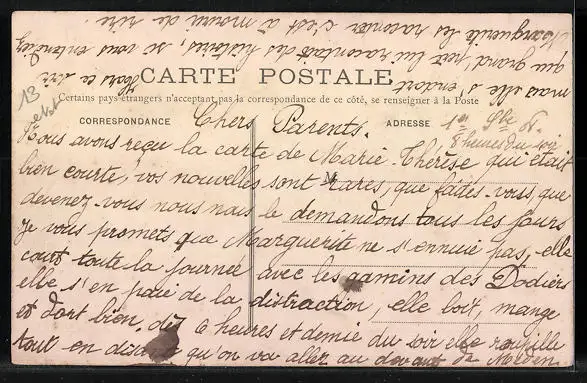 CARTE POSTALE
Certains pays étrangers n'acceptant pas la correspondance de ce côté, se renseigner à la Poste
CORRESPONDANCE
ADRESSE
13
1er 8bre
8 heures du soir
Chers Parents.
Nous avons reçu la carte de Marie Thérèse qui était
bien courte, vos nouvelles sont rares, que faites-vous, que
devenez-vous nous nous le demandons tous les jours
Je vous promets que Marguerite ne s'ennuie pas, elle
court toute la journée avec les gamins des Dodiers
elle s'en paie de la distraction, elle boit, mange
et dort bien, dès 6 heures et demie du soir elle roupille
tout en disant qu'on va aller au devant de
mais elle s'endort. Alors ce soir
que grand'père lui racontait des histoires, si vous entendiez
Marguerite les raconter c'est à mourir de rire